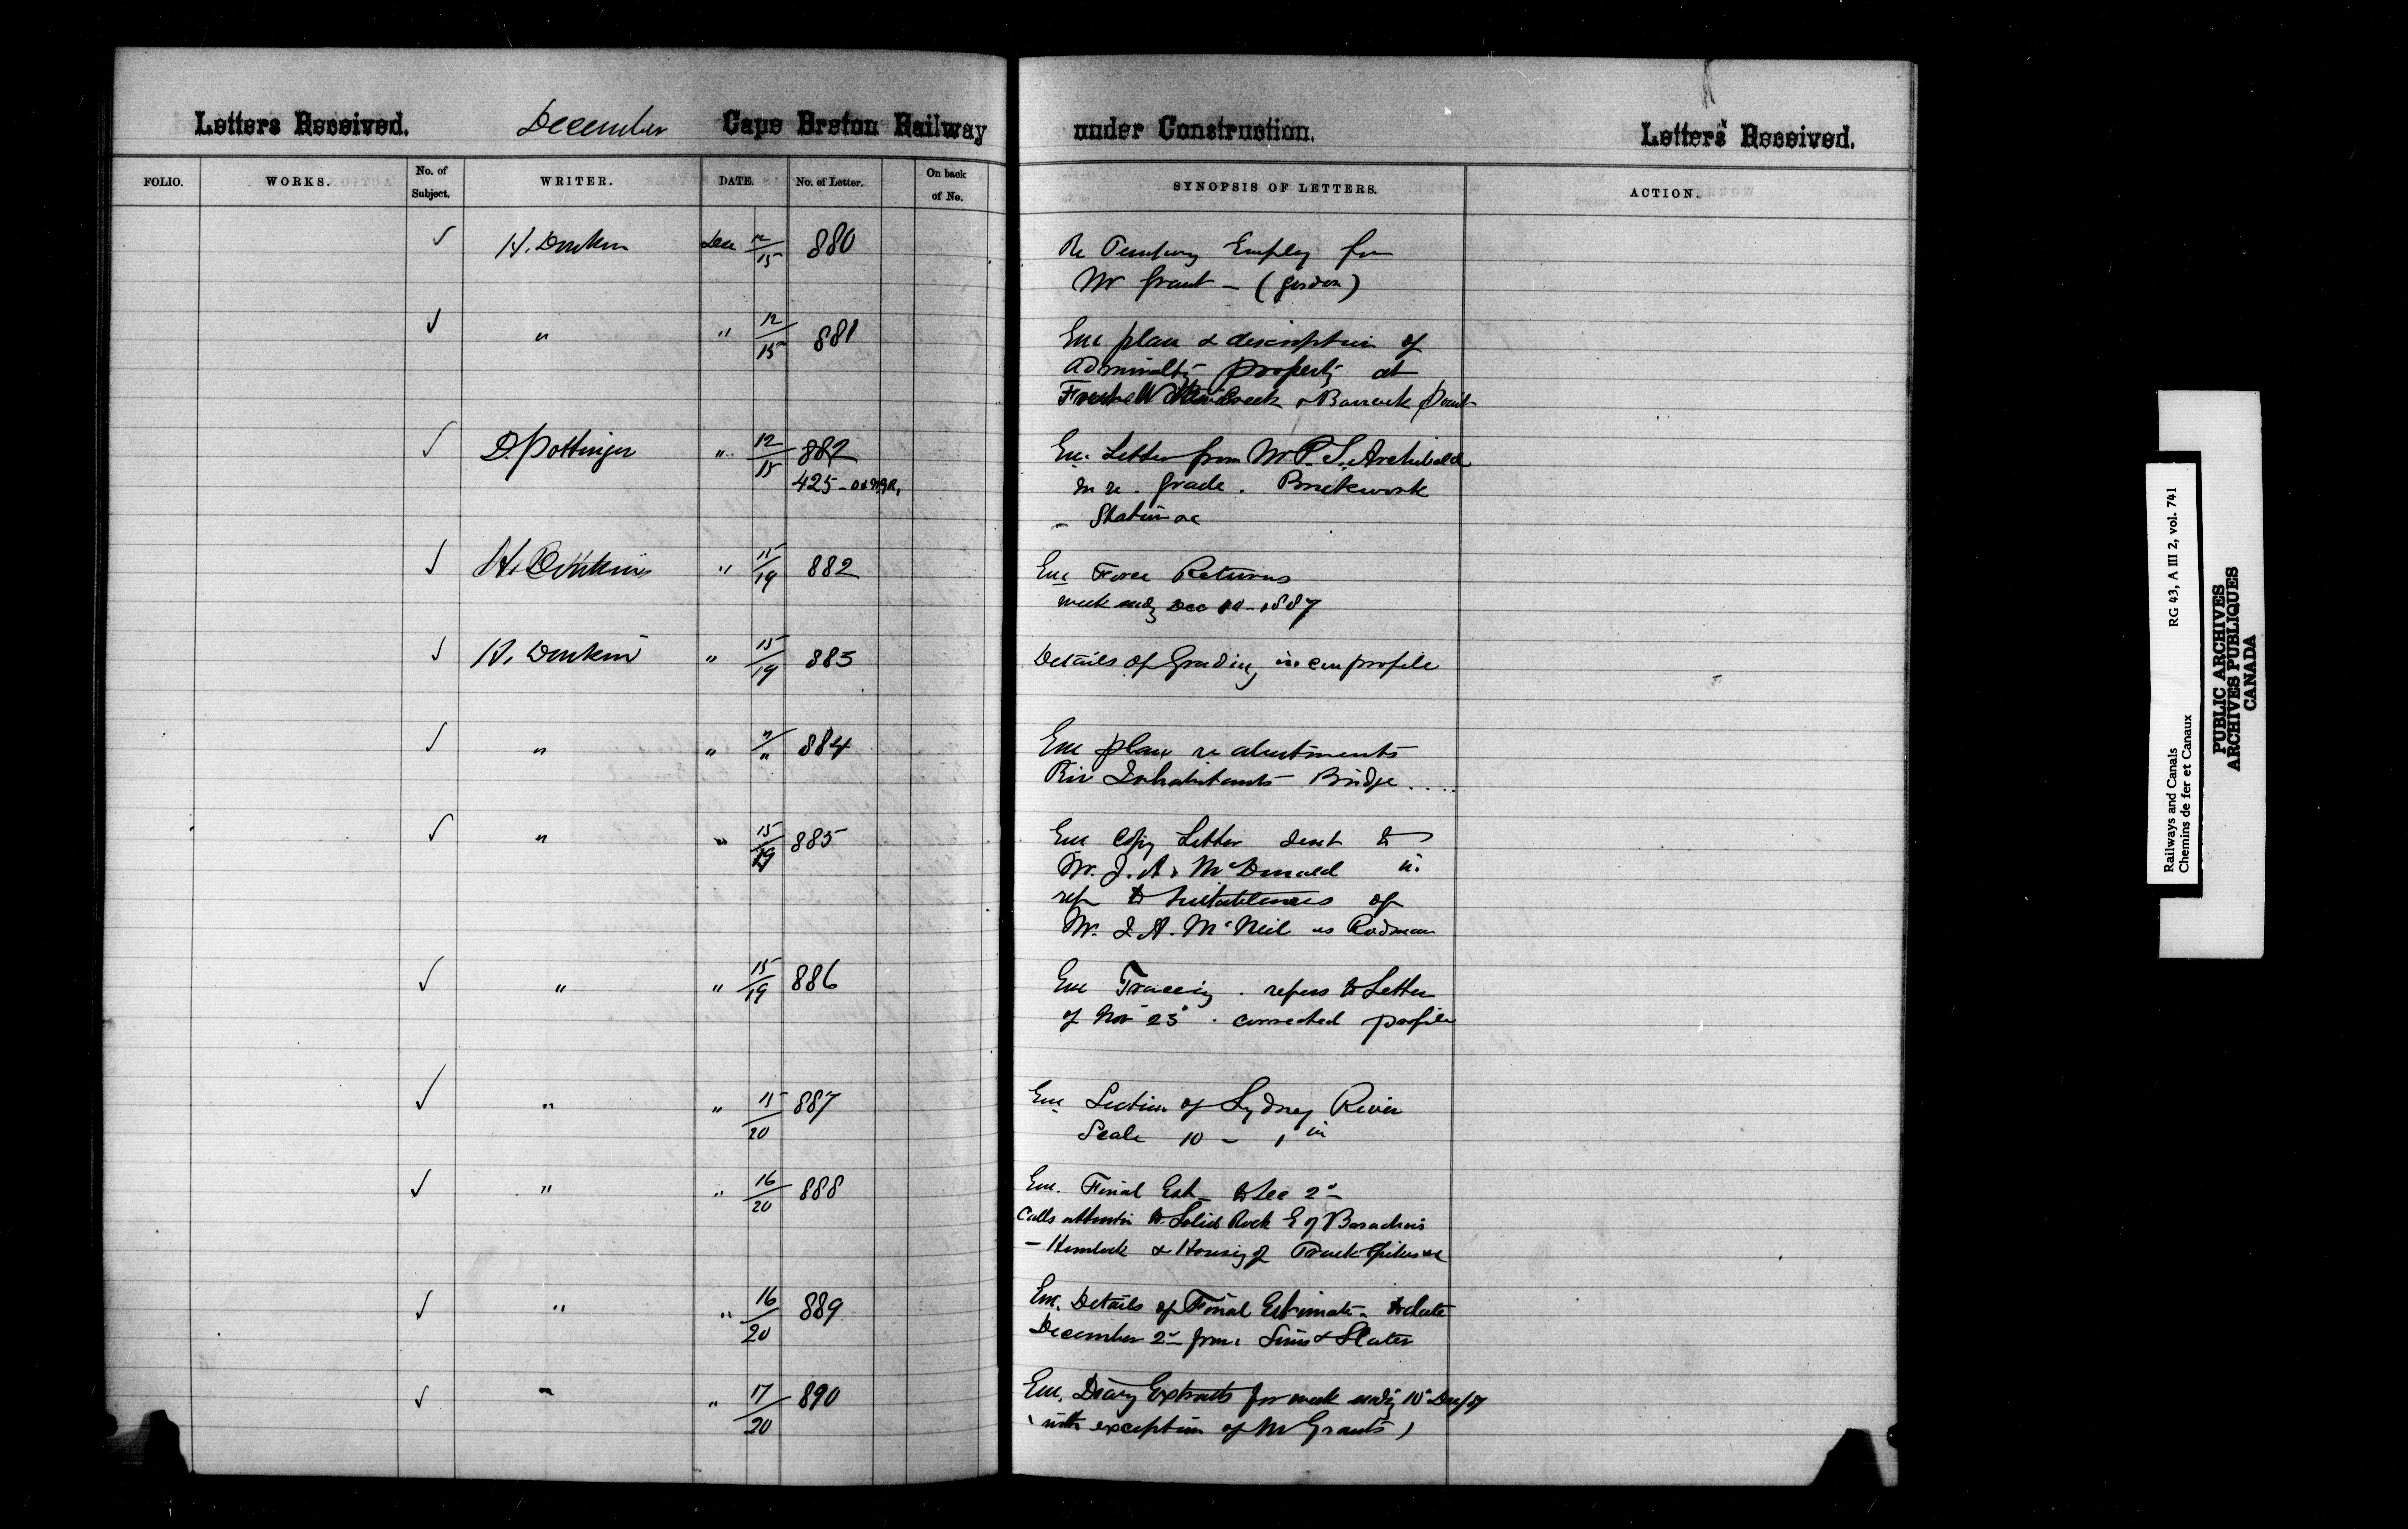 Letters Received. December Cape Breton Railway under Construction. Letters Received.
FOLIO. WORKS. No. of Subject. WRITER. DATE. No. of Letter. On back of No. SYNOPSIS OF LETTERS. ACTION.
✓ H. Donkin Dec 12/15 880 Re Temporary Employ for
Mr Grant - (Gordon)
✓ " " 12/15 881 Enc plan & description of
Admiralty property at
Creek & Barrack Point
✓ D. Pottinger " 12/15 882
Enc. Letter from Mr P. S. Archibald
425 -
in re . Grade . Brickwork
- Station &c
✓ H. Donkin " 15/19 882 Enc Force Returns
week endg Dec 10 - 1887
✓ H. Donkin " 15/19 883 Details of Grading in profile
✓ " " "/" 884 Enc plan re abutments
Riv Inhabitants Bridge ....
✓ " " 15/19 885 Enc Copy Letter sent to
Mr. J. A. McDonald in
refr to suitableness of
Mr. J. A. McNeil as Rodman
✓ " " 15/19 886 Enc Tracing . refers to Letter
of Nov 25 . corrected profile
✓ " " 15/20 887 Enc Section of Sydney River
Scale 10 - 1 in
✓ " " 16/20 888 Enc. Final Est - to Dec 2d
Calls attention to Solid Rock E of Barachois
- Hemlock & Housing of Track Spikes &c
✓ " " 16/20 889 Enc. Details of Final Estimate - to date
December 2d from Sims & Slater
✓ " " 17/20 890 Enc. Diary Extracts for week endg 10 Dec/87
(with exception of Mr Grants)
Railways and Canals
Chemins de fer et Canaux
RG 43, A III 2, vol. 741
PUBLIC ARCHIVES
ARCHIVES PUBLIQUES
CANADA